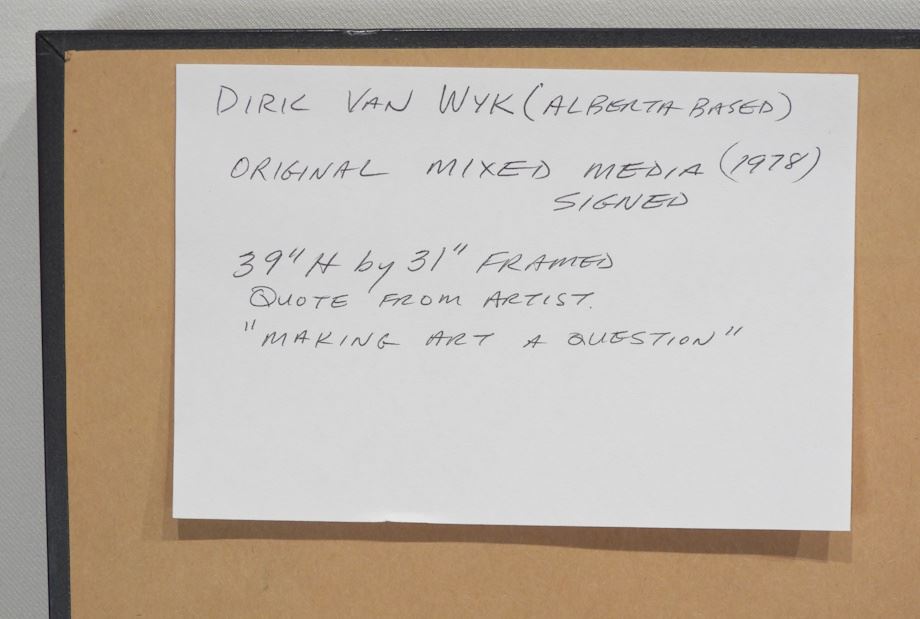 DIRK VAN WYK (ALBERTA BASED)
ORIGINAL MIXED MEDIA (1978)
SIGNED
39" H by 31" FRAMED
QUOTE FROM ARTIST.
"MAKING ART A QUESTION"